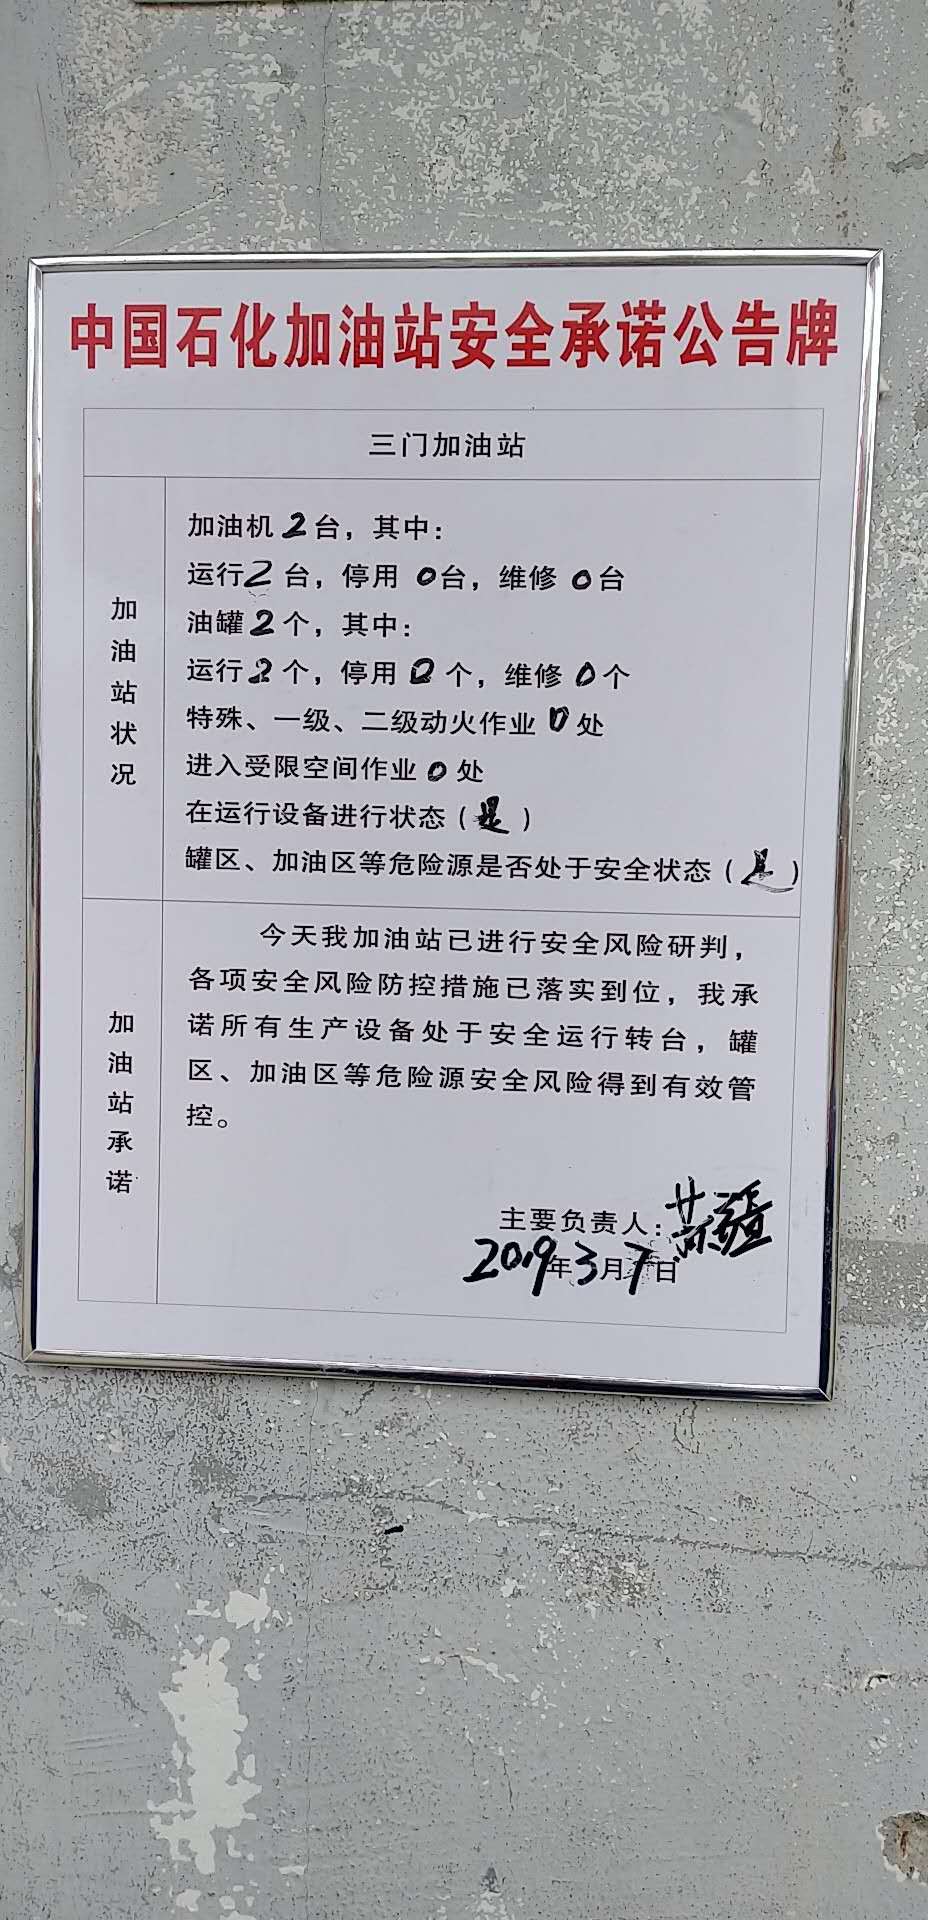 中国石化加油站安全承诺公告牌
三门加油站
加油站状况
加油机2台，其中：
运行2台，停用0台，维修0台
油罐2个，其中：
运行2个，停用0个，维修0个
特殊、一级、二级动火作业0处
进入受限空间作业0处
在运行设备进行状态（是）
罐区、加油区等危险源是否处于安全状态（是）
加油站承诺
今天我加油站已进行安全风险研判，
各项安全风险防控措施已落实到位，我承
诺所有生产设备处于安全运行转台，罐
区、加油区等危险源安全风险得到有效管
控。
主要负责人：
2019年3月7日